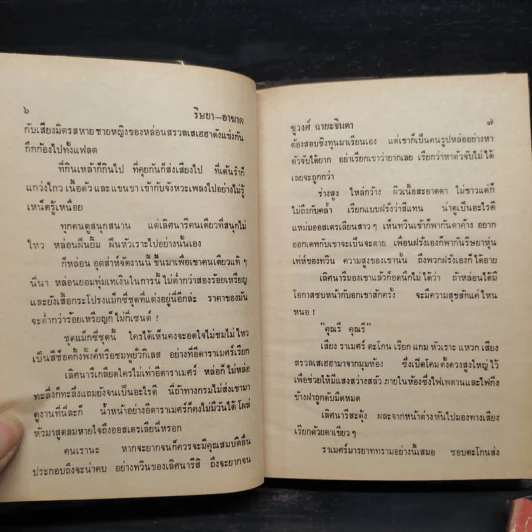 ๖
ริษยา—อาฆาต
กับเสียงมิตรสหายชายหญิงของหล่อนสรวลเสเฮฮาดังแข่งกัน
กึกก้องไปทั้งแฟลต
ที่กินเหล้าก็กินไป ที่คุยกันก็ส่งเสียงไป ที่เต้นรำก็
แกว่งไกวเนื้อตัว และแขนขา เข้ากับจังหวะเพลงไปอย่างไม่รู้
เหน็ดรู้เหนื่อย
ทุกคนดูสนุกสนาน แต่เลิศนารีคนเดียวที่สนุกไม่
ไหว หล่อนฝืนยิ้ม ฝืนหัวเราะไปอย่างนั้นเอง
ก็หล่อน อุตส่าห์จัดงานนี้ ขึ้นมาเพื่อเขาคนเดียวแท้ๆ
นี่นา หล่อนยอมทุ่มเทเงินในการนี้ ไม่ต่ำกว่าสองร้อยเหรียญ
และยังเสื้อกระโปรงแม็กซี่ชุดที่แต่งอยู่นี่อีกล่ะ ราคาของมัน
จะต่ำกว่าร้อยเหรียญก็ไม่กี่เซนต์
ชุดแม็กซี่ชุดนี้ ใครได้เห็นคงจะอดใจไม่ชมไม่ไหว
เป็นสีช้อคกิ้งพิ้งค์หรือชมพูยั่วกิเลส อย่างที่อีตาราเมศร์เรียก
เลิศนารีเกลียดใครไม่เท่าอีตาราเมศร์ หล่อก็ไม่หล่อ
ทะลึ่งก็ทะลึ่งแถมยังจนเป็นอะไรดี นี่ถ้าทางกรมไม่ส่งเขามา
ดูงานที่นี่ละก็ น้ำหน้าอย่างอีตาราเมศร์ก็คงไม่มีวันได้ โผล่
หัวมาสูดลมหายใจถึงออสเตรเลียนี่หรอก
คนเรานะ หากจะยากจนก็ควรจะมีคุณสมบัติอื่น
ประกอบถึงจะน่าคบ อย่างทวินของเลิศนารีสิ ถึงจะยากจน
ชูวงศ์ ฉายะจินดา
๗
ต้องสอบชิงทุนมาเรียนเอง แต่เขาก็เป็นคนรูปหล่ออย่างหา
ตัวจับได้ยาก อย่าเรียกเขาว่ายากเลย เรียกว่าหาตัวจับไม่ได้
เลยจะถูกกว่า
ร่างสูง ไหล่กว้าง ผิวเนื้อสะอาดตา ไม่ขาวแต่ก็
ไม่ถึงกับคล้ำ เรียกแบบฝรั่งว่าสีแทน น่าดูเป็นอะไรดี
แหม่มออสเตรเลียนสาวๆ เห็นทวินเข้าก็พากันตาค้าง อยาก
ออกเดทกับเขาจะเป็นจะตาย เพื่อนฝรั่งเองก็พากันริษยาหุ่น
เท่ห์ของทวิน ความสูงของเขานั้น ถึงพวกฝรั่งเองก็ได้อาย
เลิศนารีมองเขาแล้วก็อดนึกไม่ได้ว่า ถ้าหล่อนได้มี
โอกาสซบหน้ากับอกเขาสักครั้ง จะมีความสุขสักแค่ไหน
หนอ !
“คุณรี คุณรี”
เสียง ราเมศร์ ตะโกน เรียก แกม หัวเราะ แหวก เสียง
สรวลเสเฮฮามาจากมุมห้อง ซึ่งเปิดโคมตั้งดวงสูงใหญ่ ไว้
เพื่อช่วยให้มีแสงสว่างสลัว ภายในห้องซึ่งไฟเพดานและไฟกิ่ง
ข้างฝาถูกดับมืดหมด
เลิศนารีสะดุ้ง ผละจากหน้าต่างหันไปมองทางเสียง
เรียกด้วยตาเขียวๆ
ราเมศร์มารยาททรามอย่างนี้เสมอ ชอบตะโกนส่ง